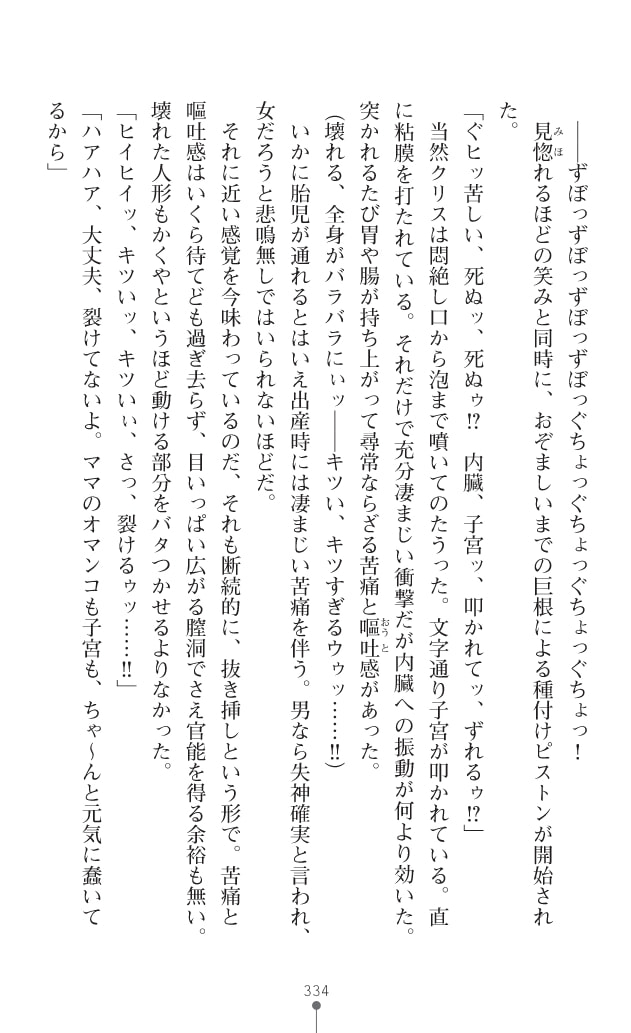 ――ずぼっずぼっずぼっずぼっぐちょっぐちょっぐちょっぐちょっ！
見惚れるほどの笑みと同時に、おぞましいまでの巨根による種付けピストンが開始され
みほ
た。
「ぐヒッ苦しい、死ぬッ、死ぬゥ!?　内臓、子宮ッ、叩かれてッ、ずれるゥ!?」
当然クリスは悶絶し口から泡まで噴いてのたうった。文字通り子宮が叩かれている。直
に粘膜を打たれている。それだけで充分凄まじい衝撃だが内臓への振動が何より効いた。
突かれるたび胃や腸が持ち上がって尋常ならざる苦痛と嘔吐感があった。
おうと
(壊れる、全身がバラバラにぃッ――キツい、キツすぎるウゥッ……!!)
いかに胎児が通れるとはいえ出産時には凄まじい苦痛を伴う。男なら失神確実と言われ、
女だろうと悲鳴無しではいられないほどだ。
それに近い感覚を今味わっているのだ、それも断続的に、抜き挿しという形で。苦痛と
嘔吐感はいくら待てども過ぎ去らず、目いっぱい広がる膣洞でさえ官能を得る余裕も無い。
壊れた人形もかくやというほど動ける部分をバタつかせるよりなかった。
「ヒイヒイッ、キツいッ、キツいぃ、さっ、裂けるゥッ……!!」
「ハアハア、大丈夫、裂けてないよ。ママのオマンコも子宮も、ちゃ〜んと元気に蠢いて
るから」
334